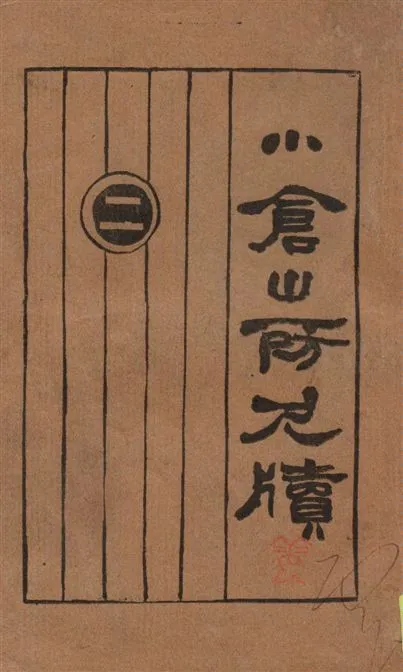 小倉山房尺牘
二